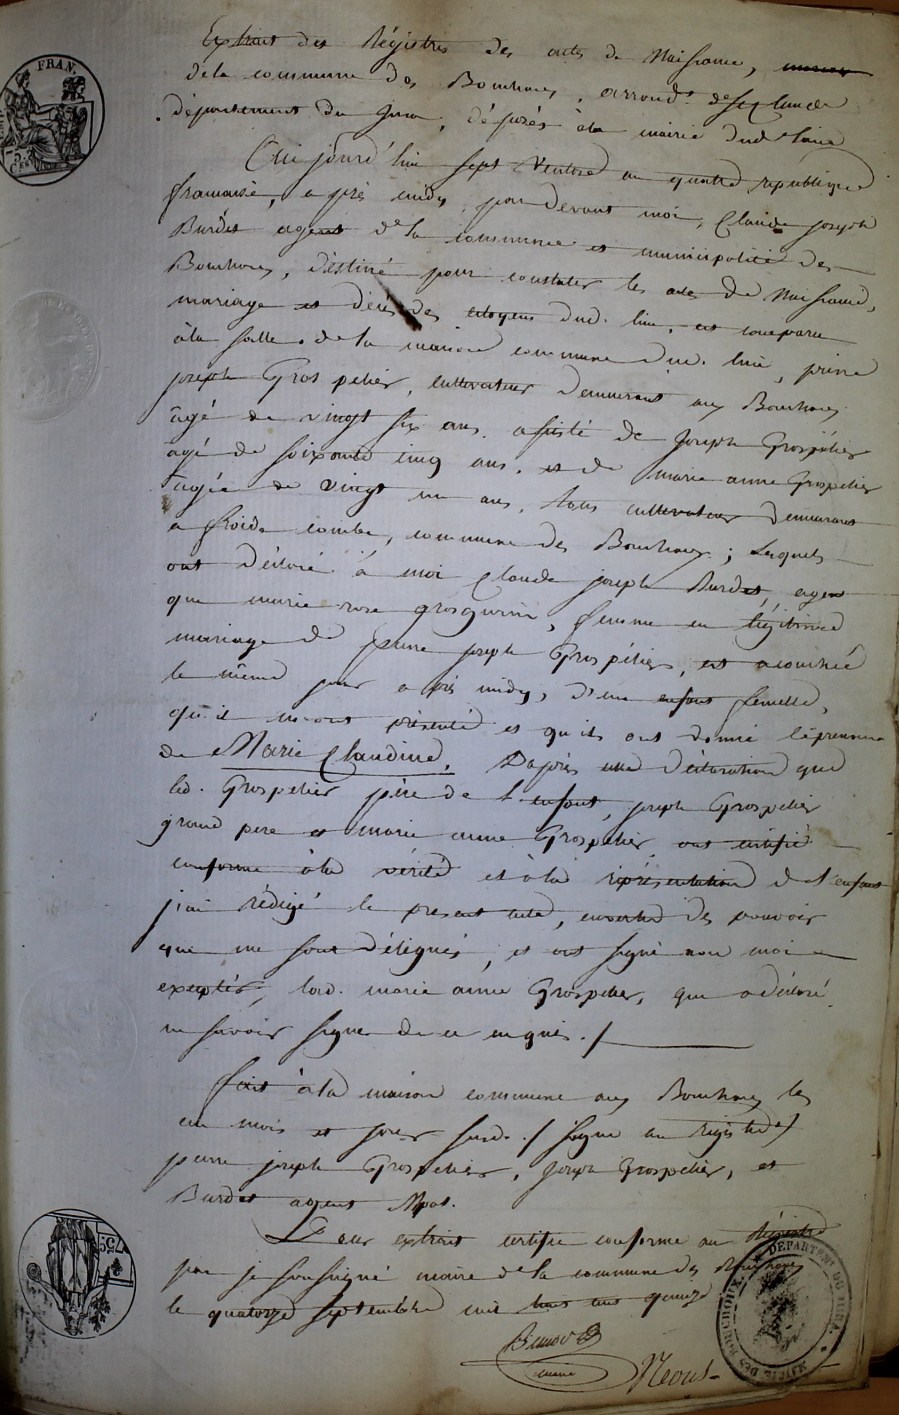 Extrait des Régistres des actes de Naissance,
de la commune des Bouchoux, arrond.t de St Claude
département du Jura, déposés à la mairie dud. lieu
Cejourd'hui sept Ventose an quatre république
francaise, après midy, par devant moi, Claude joseph
Burdet agent de la commune et municipalité des
Bouchoux, déstiné pour constater les actes de Naissance,
mariage et décès des citoyens dud. lieu, est comparu
à la salle de la maison commune dud. lieu, pierre
joseph Grospelier, cultivateur demeurant aux Bouchoux
âgé de vingt six ans. assisté de Joseph Grospélier
âgé de soixante cinq ans, et de marie anne Grospelier
agée de vingt un ans, tous cultivateurs demeurant
a froide combe, commune des Bouchoux; lesquels
ont déclaré à moi Claude joseph Burdet, agent
que marie rose grosgurin, femme en légitime
mariage de pierre joseph Grospélier, est acouchée
le même jour après midy, d'un enfant femelle,
qu'il mont présenté et qu'ils ont donné le prenom
de Marie Claudine, Daprès une déclaration que
led. Grospelier père de l'enfant, joseph Grospelier
grand pere et marie anne Grospelier ont certifié
conforme à la vérité et à la représentation de l'enfant
j'ai rédigé le present acte, en vertu des pouvoirs
que me sont délégués, et ont signé avec moi
exceptés, lad. marie anne Grospelier, que a déclaré
ne savoir signer de ce enquis ./
fait à la maison commune aux Bouchoux les
an mois et jour susd. / signé au registre /
pierre joseph Grospelier, Joseph Grospelier, et
Burdet agent Mpal.
Pour extrait certifié conforme au Régistre
par je soussigné maire de la commune des Bouchoux
le quatorze septembre mil huit cent quinze
maire
FRAN.
MAIRIE DES BOUCHOUX. DEPARTEMt DU JURA.